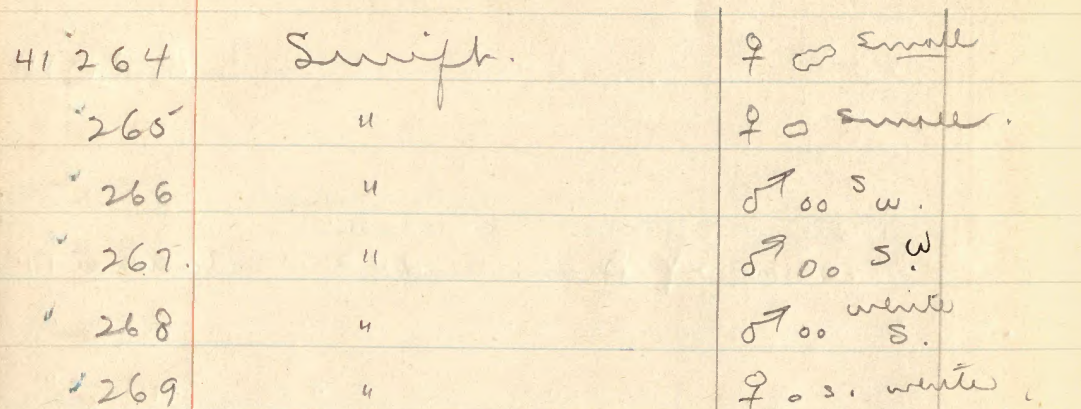 41 264 Swift. ♀ small
265 " ♀ small.
266 " ♂ s w.
267. " ♂ s w
268 " ♂ white s.
269 " ♀ s. white.